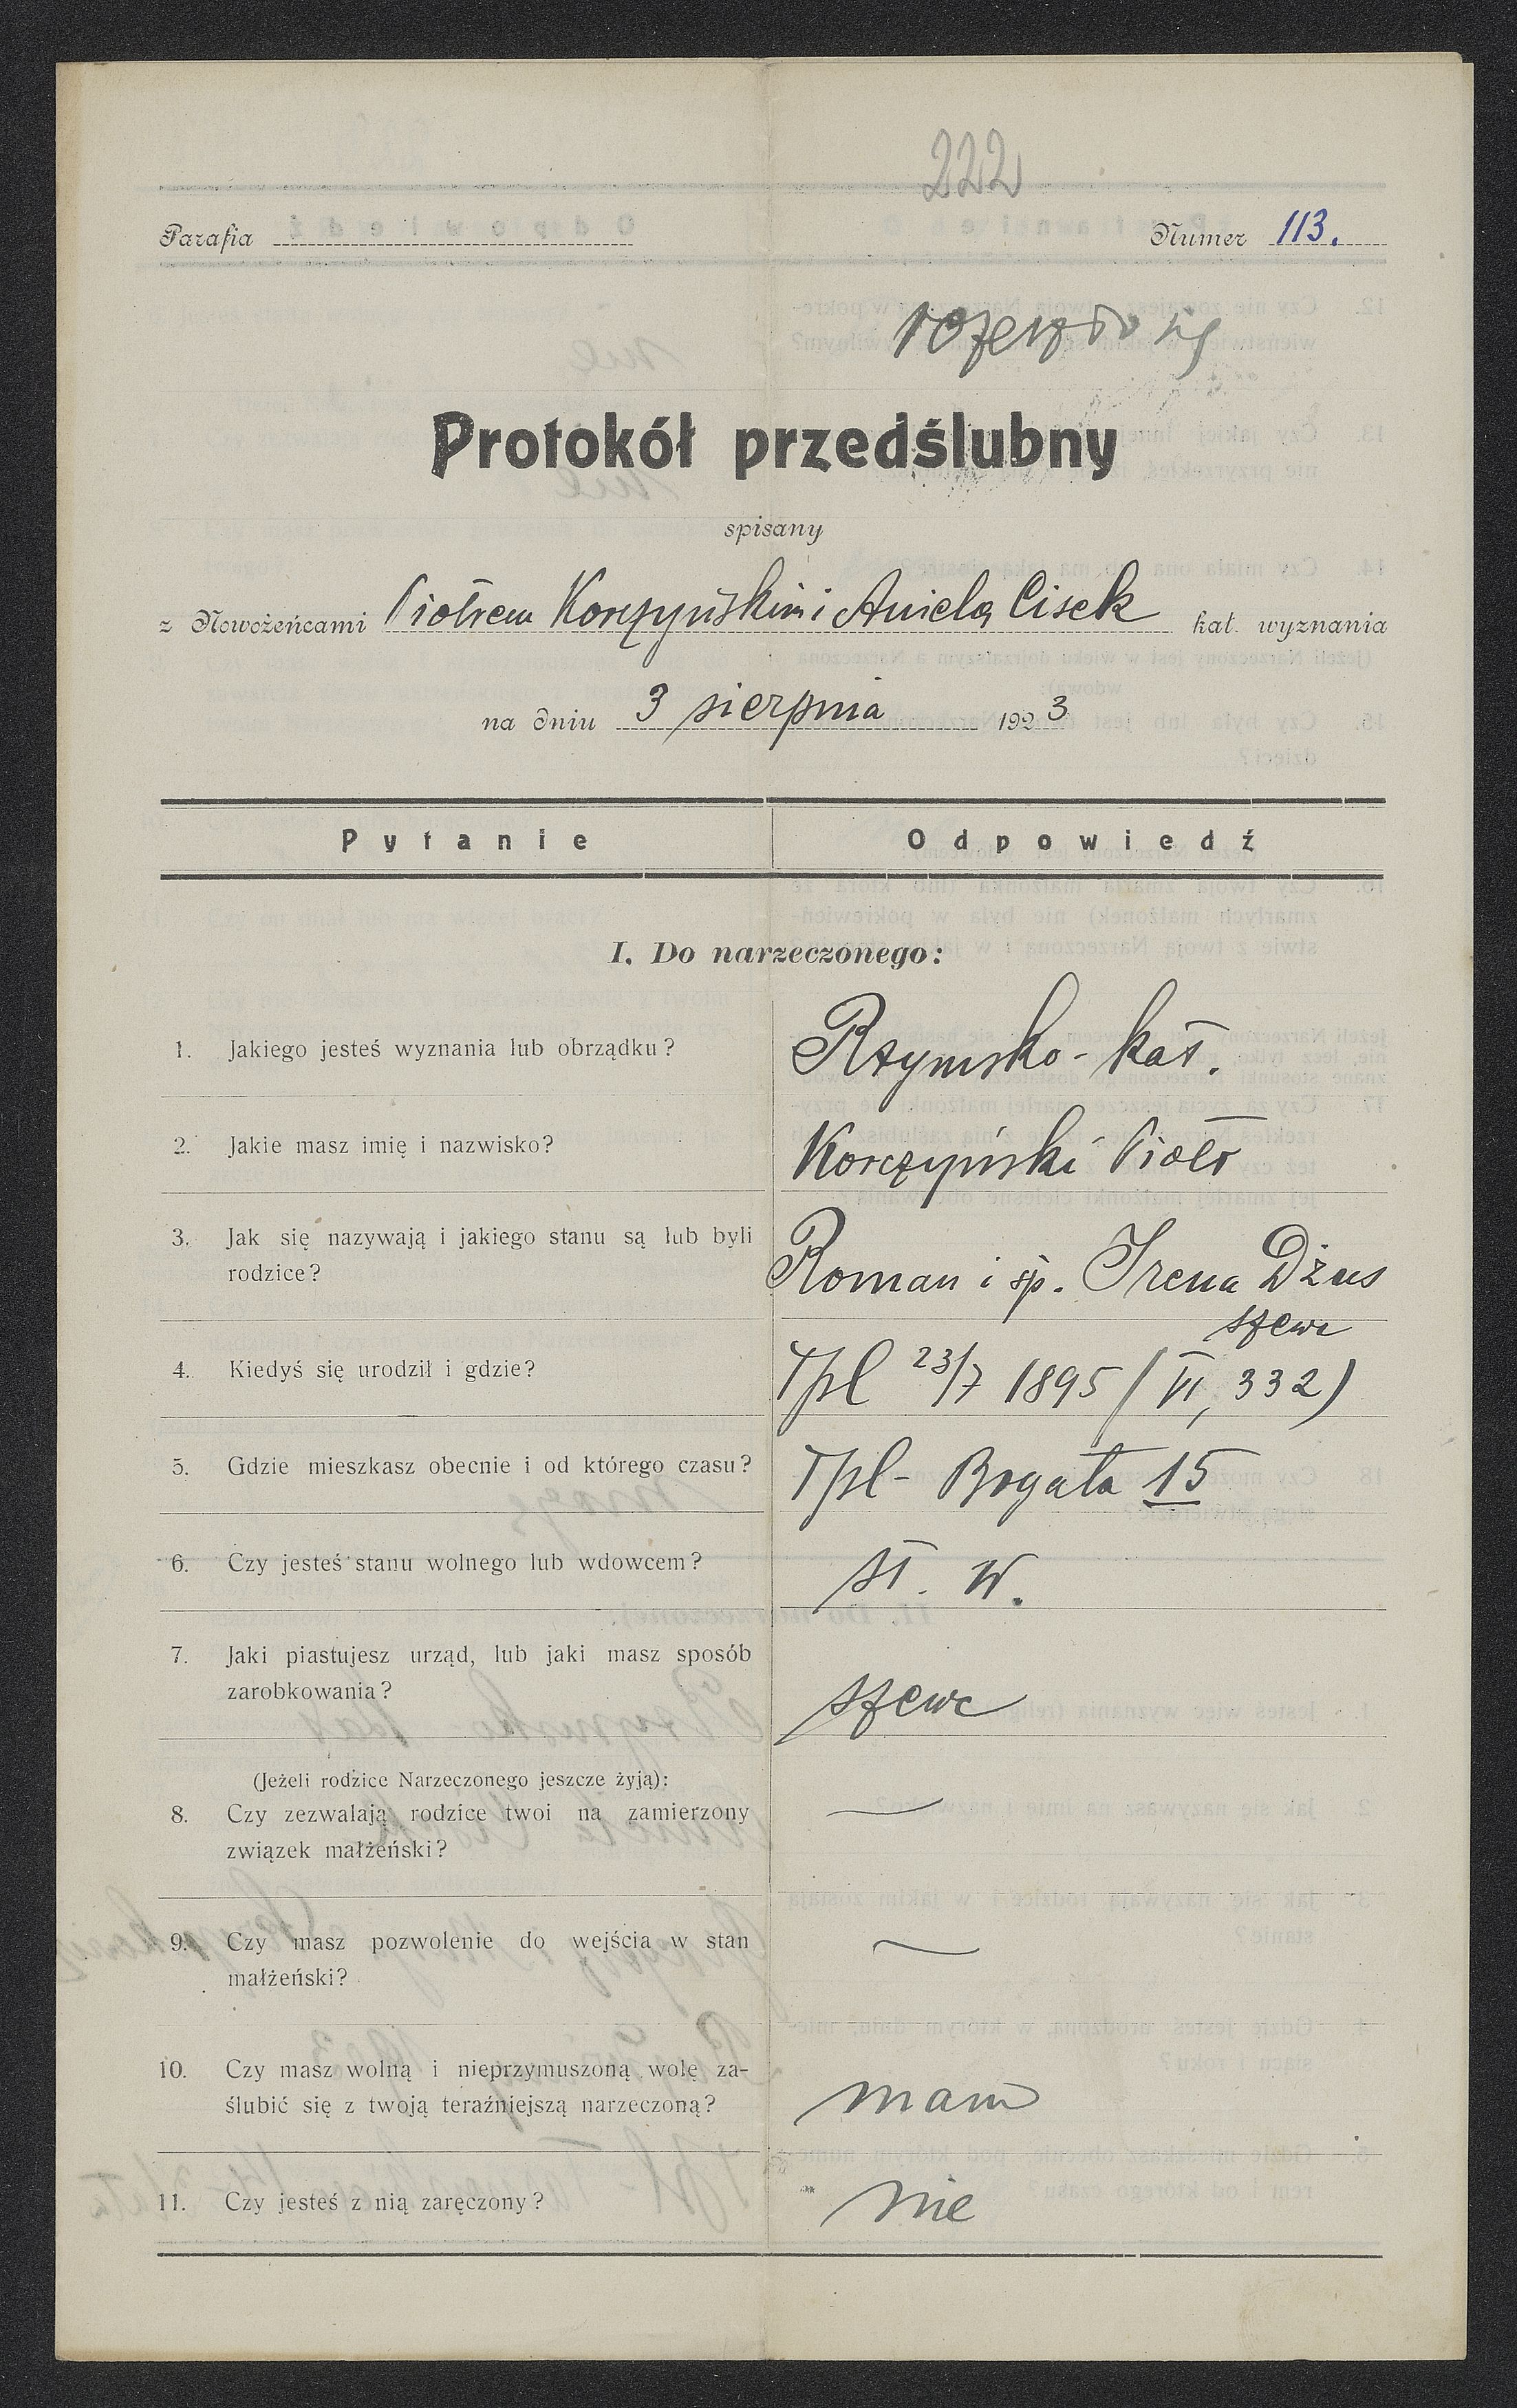 222
Parafia Numer 113.
rozeszło się
Protokół przedślubny
spisany
z Nowożeńcami Piotrem Korczyńskim i Anielą Cisek kat. wyznania
na dniu 3 sierpnia 1923
Pytanie Odpowiedź
I. Do narzeczonego:
1. Jakiego jesteś wyznania lub obrządku? Rzymsko-kat.
2. Jakie masz imię i nazwisko? Korczyński Piotr
3. Jak się nazywają i jakiego stanu są lub byli
rodzice? Roman i śp. Irena Dżus
szewc
4. Kiedyś się urodził i gdzie? Tpl 23/7 1895 (VI, 332)
5. Gdzie mieszkasz obecnie i od którego czasu? Tpl- Bogata 15
6. Czy jesteś stanu wolnego lub wdowcem? st. w.
7. Jaki piastujesz urząd, lub jaki masz sposób
zarobkowania? szewc
(Jeżeli rodzice Narzeczonego jeszcze żyją):
8. Czy zezwalają rodzice twoi na zamierzony
związek małżeński? —
9. Czy masz pozwolenie do wejścia w stan
małżeński? —
10. Czy masz wolną i nieprzymuszoną wolę za-
ślubić się z twoją teraźniejszą narzeczoną? mam
11. Czy jesteś z nią zaręczony? nie